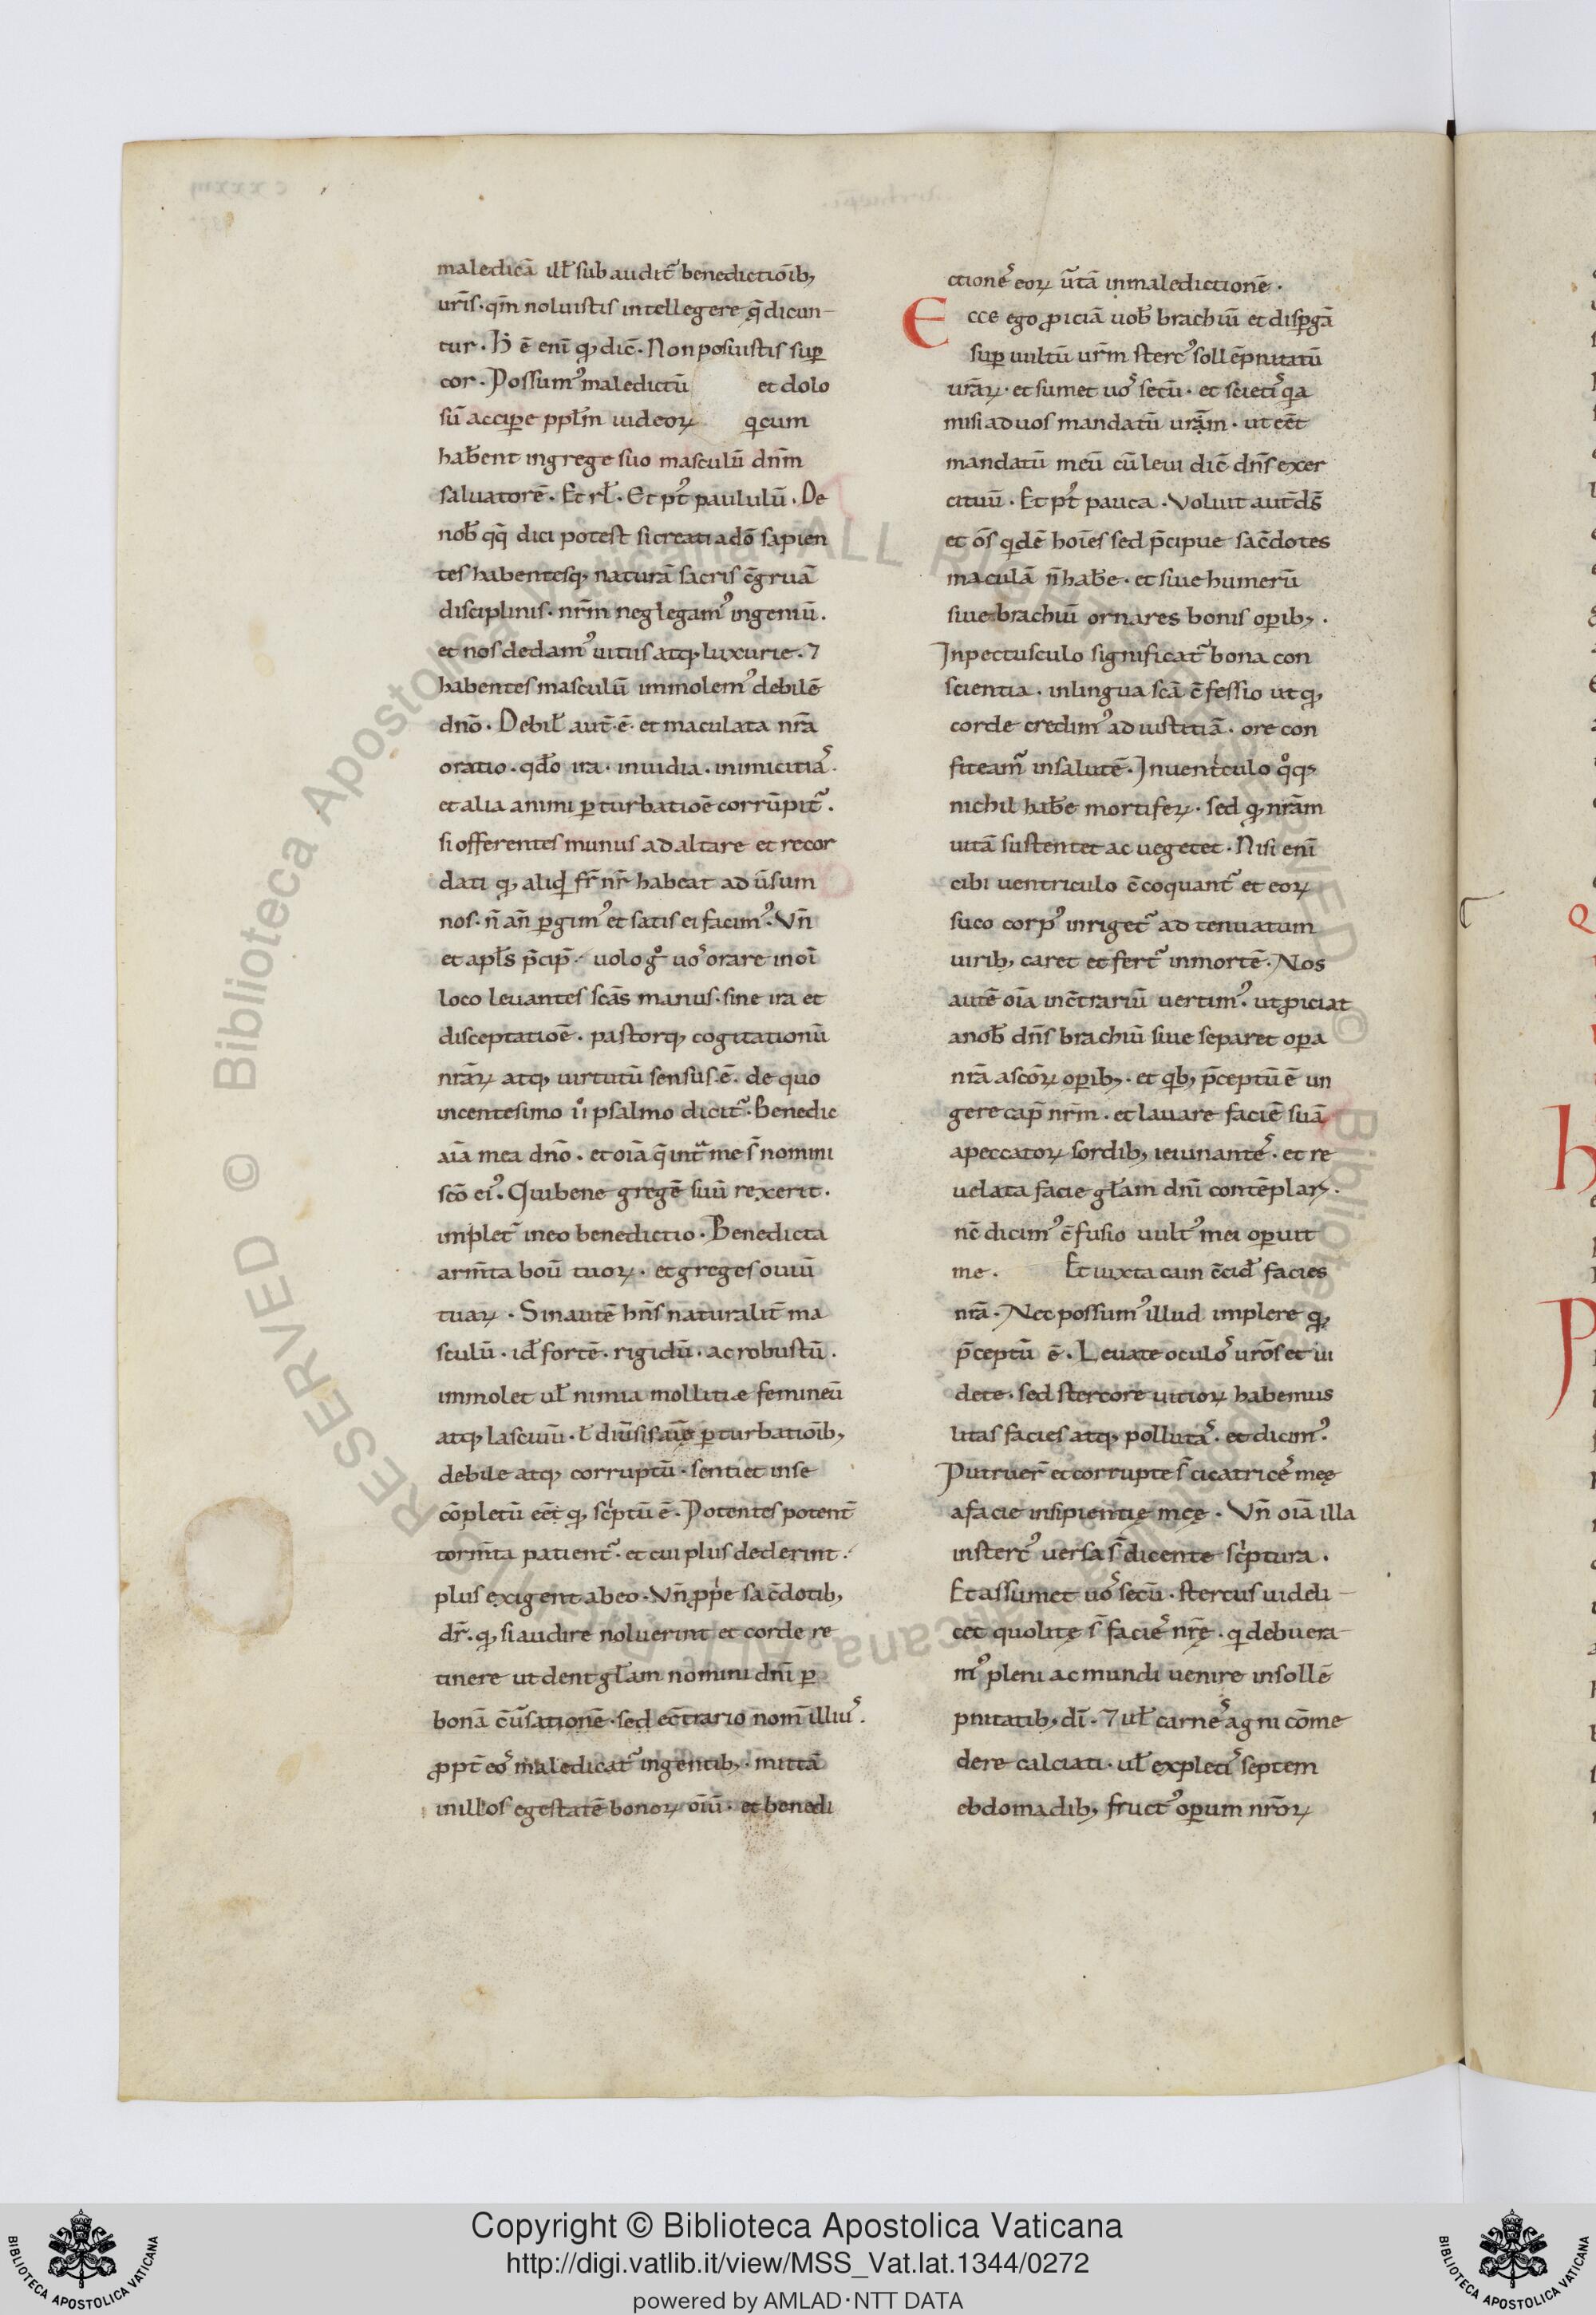 maledicā ill̄ sub auditˀ benedictiōib;
ur̄is · qm̄ noluistis intellegere q̄ dicun-
tur · H̄ ē eni̅ qđ dic̄ · Non posuistis sup̱
cor · Possumꝰ maledictū et dolo
su̅ accip̱e ppl̄m iudeoꝝ qicum
hab̄ent in grege suo masculū dn̄m
saluatorē · Et rl̄ · Et pꝰt paululū · De
nob̄ qq̄ dici potest si creati a dō sapien
tes habentesq; naturā sacris c̄gruā
disciplinis · nr̄m neglegamꝰ ingeniū ·
et nos dedamꝰ uitiis atq; luxurie · ⁊
habentes masculū immolemꝰ debilē
dn̄o · Debil̄ aut̄ · ē · et maculata nr̄a
oratio · qđo ira · inuidia · inimicitiaˢ ·
et alia animi p̱turbatiōe corrūpitˀ ·
si offerentes munus ad altare et recor
dati q; aliqđ fr̄ nr̄ habeat aduˉsum
nos · n̄ an̄ p̱gimꝰ et satis ei facimꝰ · Vn̄
et apl̄s p̄cip̄ · uolo gͦ uoˢ orare in oi̅
loco leuantes scās manus · sine ira et
disceptatiōe · pastorq; cogitationū
nr̄aꝝ atq; uirtutū sensus · ē · de quo
in centesimo iͦi psalmo dicitˀ · Benedic
aīa mea dn̄o · et oīa q̄ intᵃ me s̄ nomini
scō eiꝰ · Qui bene gregē suū rexerit ·
impletˀ in eo benedictio · Benedicta
arm̄ta boū tuoꝝ · et greges ouiū
tuaꝝ · Sin autē hn̄s naturalit̄ ma
sculū · iđ fortē · rigidū · ac robustū ·
immolet ul̄ nimia mollitiæ femineū
atq; lasciuū · l̄ diūsis p̱turbatiōib;
debile atq; corruptū · sentiet in se
cōpletū eēt q; sc̄ptū ē · Potentes potent̄
torm̄ta patientˀ · et cui plus dederint ·
plus exigent ab eo · Vn̄ ꝓp̄e sac̄dotib;
dr̄ · q; si audire noluerint et corde re
tinere ut dent gl̄am nomini dn̄i p̱
bonā c̄uˉsationē · sed ec̄trario nom̄ illiuˢ ·
ꝓpt̄ eoˢ maledicatˀ in gentib; · mittā
in illos egestatē bonoꝝ oīū · et benedi
ctioneˢ eoꝝ ūtā in maledictionē ·
Ecce ego ꝓiciā uob̄ brachiū et disp̱gā
sup̱ uultū ur̄m stercꝰ sollēpnitatū
ur̄aꝝ · et sumet uoˢ secū · et scietiˢ qia
misi ad uos mandatū ur̄am · ut eēt
mandatū meū cū leui dic̄ dn̄s exer
cituū · Et pꝰt pauca · Voluit aut̄ ds̄
et ōs qidē hoīes sed p̄cipue sac̄dotes
maculā n̄ hab̄e · et siue humerū
siue brachiū ornares bonis op̱ib; ·
In pectusculo significatˀ bona con
scientia · in lingua scā c̄fessio ut q;
corde credimꝰ ad iustitiā · ore con
fiteamˀ in salutē · In uentⁱculo qͦq;
nichil hab̄e mortiferꝝ · sed q; nr̄am
uitā sustentet ac uegetet · Nisi eni̅
cibi uentriculo c̄coquantˀ et eoꝝ
suco corpꝰ inrigetˀ ad tenuatum
uirib; caret et fertˀ in mortē · Nos
autē oīa in c̄trariū uertimꝰ · ut ꝓiciat
a nob̄ dn̄s brachiū siue separet op̱a
nr̄a a scōꝝ op̱ib; · et qib; p̄ceptū ē un
gere cap̄ nr̄m · et lauare faciē suā
a peccatoꝝ sordib; ieiunanteˢ · et re
uelata facie gl̄am dn̄i contēplarꝝ ·
nc̄ dicimꝰ c̄fusio uultꝰ mei op̱uit
me · Et iuxta cain c̄ciđ facies
nr̄a · Nec possumꝰ illud implere q;
p̄ceptū ē · Leuate oculoˢ ur̄os et ui
dete · sed stercore uitioꝝ habemus
litas facies atq; pollutaˢ · et dicimꝰ ·
Putruer̄ et corrupte s̄ cicatriceˢ meę
a facie insipientię meę · Vn̄ oīa illa
in stercꝰ uersa s̄ dicente sc̄ptura ·
Et assumet uoˢ secū · stercus uideli-
cet quo litę s̄ facieˢ nr̄ę · qi debuera-
mꝰ pleni ac mundi uenire in sollē
pnitatib; di̅ · ⁊ ul̄ carneˢ agni cōme
dere calciati · ul̄ expletiˢ septem
ebdomadib; fructꝰ op̱um nr̄oꝝ
Copyright © Biblioteca Apostolica Vaticana
http://digi.vatlib.it/view/MSS_Vat.lat.1344/0272
powered by AMLAD·NTT DATA